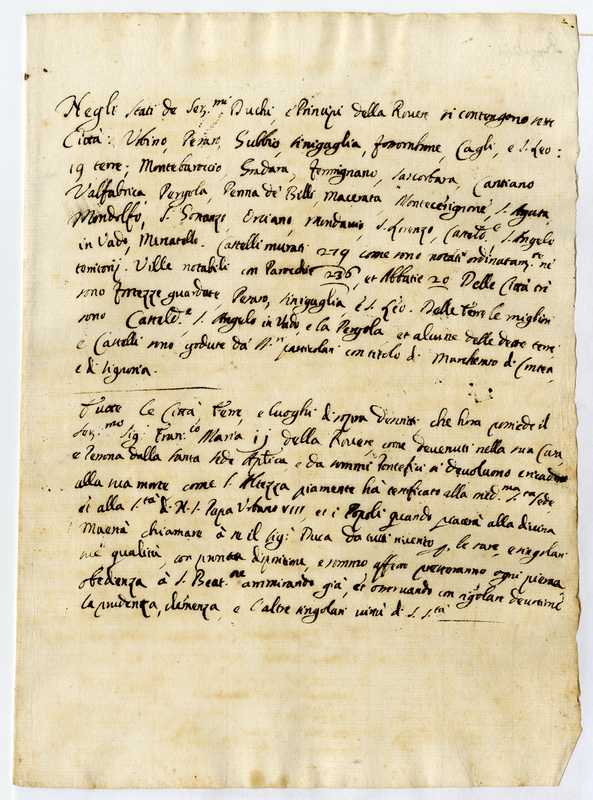 Negli stati de Ser.mi Duchi, e Prencipi della Rovere si contengono sette
Città: Urbino, Pesaro, Gubbio, Sinigaglia, fossombrone, Cagli, e S. Leo:
19 terre; Montebaroccio, Gradara, Fermignano, Sascorbara, Cantiano
Valfabrica, Pergola, Penna de' Billi, Macerata, Montecerignone, S. Agata
Mondolfo, S. Costanzo, Orciano, Mondavio, S. Lorenzo, Casteld.e S. Angelo
in Vado, Mercatello. Castelli murati 279 come sono notati ordinatam.te ne
territorij. Ville notabili con Parochie 236, et Abbatie 20 Delle Città tre
sono fortezze guardate Pesaro, Sinigaglia, e S. Leo. Delle terre le migliori
sono Casteld.e S. Angelo in Vado, e la Pergola, et alcune delle dette terre
e Castelli sono godute da particolari con titolo di Marchesato di Contea,
e di Signoria.
Tutte le Città, Terre, e luoghi di sopra descritti che hora possiede il
Ser.mo Sig. Fran.co Maria ij della Rovere come devenuti nella sua Casa,
e Persona dalla Santa Sede Ap.lica e da sommi Pontefici si devoluono e ricadono
alla sua morte come S. Altezza piamente hà testificato alla med.ma S.ta sede
et alla S.tà di N. S. Papa Urbano VIII, et i Popoli quando piacerà alla divina
Maestà chiamare à se il Sig. Duca da tutti riverito p. le rare, e singolari
sue qualità, con pronta dispositione, e sommo affetto presteranno ogni piena
obedienza à S. Beat.ne ammirando già, et osservando con singolare devotione
la prudenza, clemenza, e l'altre singolari virtù di S. S.tà